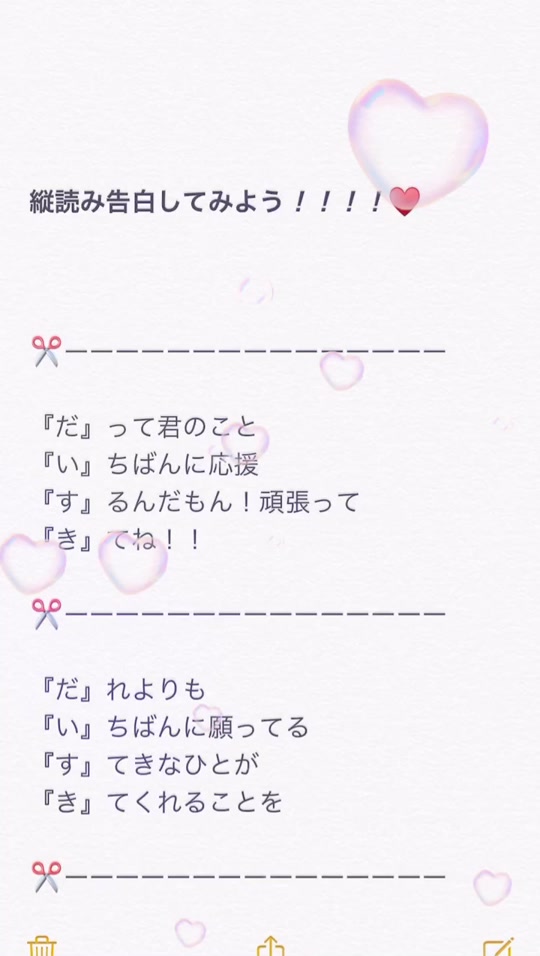 縦読み告白してみよう！！！！♥️
✂️ーーーーーーーーーーーーーーー
『だ』って君のこと
『い』ちばんに応援
『す』るんだもん！頑張って
『き』てね！！
✂️ーーーーーーーーーーーーーーー
『だ』れよりも
『い』ちばんに願ってる
『す』てきなひとが
『き』てくれることを
✂️ーーーーーーーーーーーーーーー